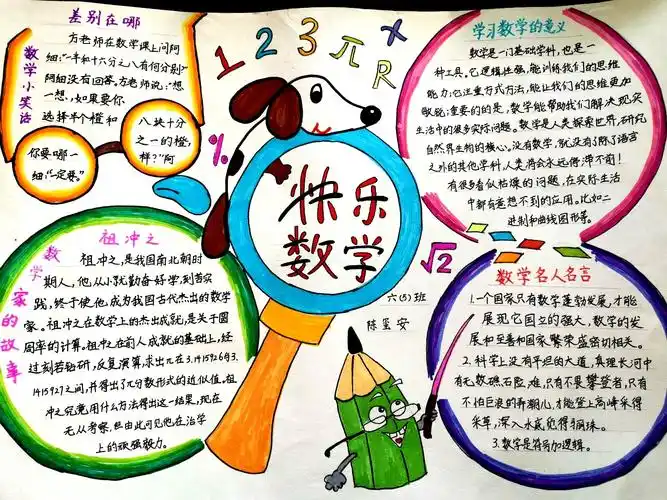 差别在哪
数学小笑话
方老师在数学课上问阿
细:“一半和十六分之八有何分别?”
阿细没有回答。方老师说:“想
一想,如果要你
选择半个橙和
八块十分
之一的橙,
你要哪一
样?”阿
细:“一定要。”
1 2 3 π R X
%
√2
快乐
数学
六(5)班
学习数学的意义
数学是一门基础学科,也是一
种工具。它逻辑性强,能训练我们的思维
能力;它注重方式方法,能让我们的思维更加
敏锐;重要的的是,数学能帮助我们解决现实
生活中的很多实际问题。数学是人类探索世界,研究
自然界生物的核心。没有数学,就没有了除了语言
之外的其他学科,人类将会永远停滞不前!
有很多看似枯燥的问题,在实际生活
中都有意想不到的应用。比如二
进制和曲线图形等。
数学家的故事
祖冲之
祖冲之,是我国南北朝时
期人,他从小就勤奋好学,刻苦实
践,终于使他,成为我国古代杰出的数学
家。祖冲之在数学上的杰出成就,是关于圆
周率的计算。祖冲之在前人成就的基础上,经
过刻苦钻研,反复演算,求出π在3.1415926与3.
1415927之间,并得出了π分数形式的近似值,祖
冲之究竟用什么方法得出这一结果,现在
无从考察,但由此可见他在治学
上的顽强毅力。
数学名人名言
1.一个国家只有数学蓬勃发展,才能
展现它国立的强大,数学的发
展和至善和国家繁荣盛密切相关。
2.科学上没有平坦的大道,真理长河中
有无数礁石险滩,只有不畏攀登者,只有
不怕巨浪的弄潮儿,才能登上高峰采得
采草,深入水底觅得骊珠。
3.数学是符号加逻辑。